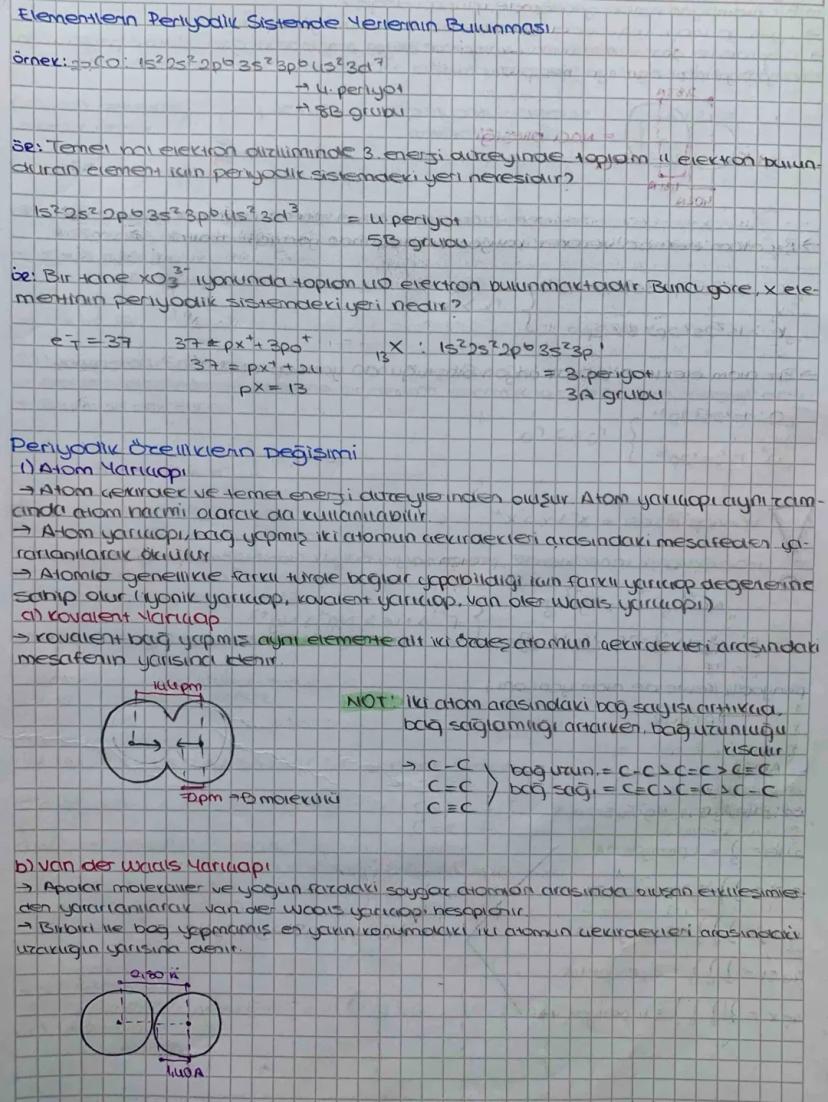 Elementlerin Periyodik Sistemde Yerlerinin Bulunması
örnek: 27CO: 1s²2s²2p⁶3s²3p⁶4s²3d⁷
→ 4. periyot
→ 8B grubu
ör: Temel hal elektron diziliminde 3. enerji düzeyinde toplam 11 elektron bulun-
duran element için periyodik sistemdeki yeri neresidir?
1s²2s²2p⁶3s²3p⁶4s²3d³ = 4 periyot
5B grubu
ör: Bir tane XO₃³⁻ iyonunda toplam 40 elektron bulunmaktadır Buna göre, x ele-
mentinin periyodik sistemdeki yeri nedir?
e⁻T = 37 37 = px⁺ + 3po⁺ 13X : 1s²2s²2p⁶3s²3p¹
37 = px⁺ + 24 = 3. periyot
px = 13 3A grubu
Periyodik Özelliklerin Değişimi
1) Atom Yarıçapı
→ Atom çekirdek ve temel enerji düzeyleinden oluşur. Atom yarıçapı aynı zam-
anda atom hacmi olarak da kullanılabilir.
→ Atom yarıçapı, bağ yapmış iki atomun çekirdekleri arasındaki mesafeden ya-
rarlanılarak ölçülür
→ Atomla genellikle farklı türde bağlar yapabildiği için farklı yarıçap değenerine
sahip olur (iyonik yarıçap, kovalent yarıçap, van der waals yarıçapı)
a) Kovalent Yarıçap
→ Kovalent bağ yapmış aynı elemente ait iki özdeş atomun çekirdekleri arasındaki
mesafenin yarısına denir.
144pm
NOT: İki atom arasındaki bağ sayısı arttıkça,
bağ sağlamlığı artarken, bağ uzunluğu
kısalır
→ C-C bağ uzun. = C-C > C=C > C≡C
C=C bağ sağl = C≡C > C=C > C-C
C≡C
pm → molekülü
b) Van der Waals Yarıçapı
→ Apolar moleküller ve yoğun fazdaki soygaz atomarı arasında oluşan etkileşimler-
den yararlanılarak van der Waals yarıçapı hesaplanır.
→ Birbiri ile bağ yapmamış en yakın konumdaki iki atomun çekirdekleri arasındaki
uzaklığın yarısına denir.
1,40A